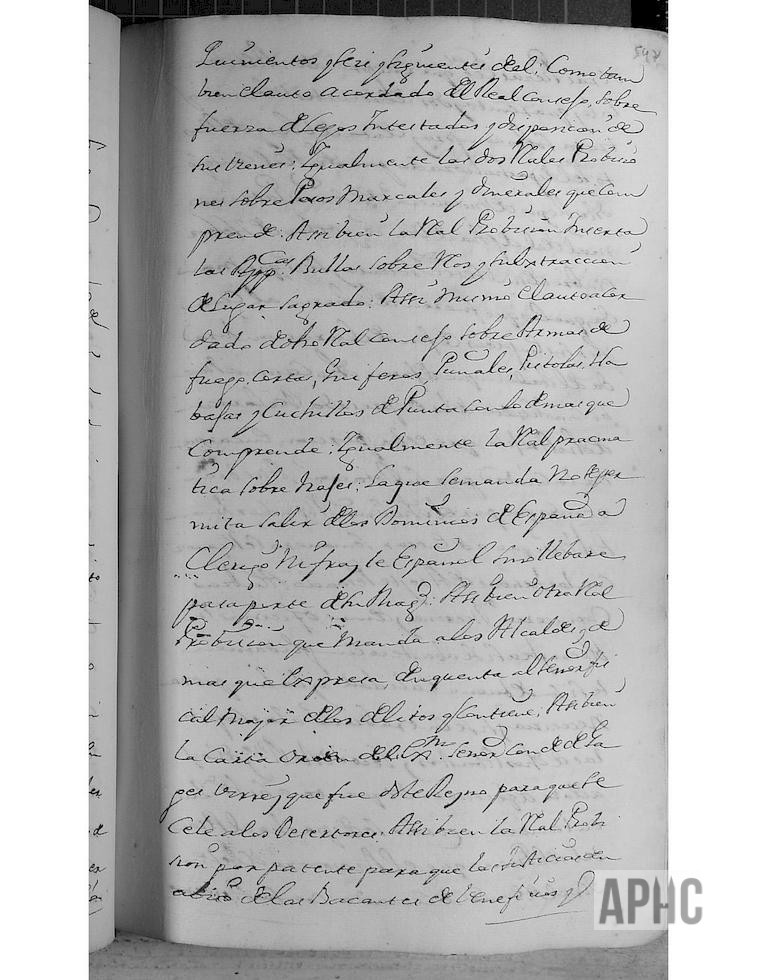 547
Quinientos y seis y siguientes del; Como tam
bien el auto acordado del Real Consejo, sobre
fuerza de Legos Intestados y disposicion de
sus vienes; Igualmente las dos Rales Probisio
nes sobre Pesos Marcales y dinerales que Com
prende. Assi bien la Ral Probision Inserta
las App.cas Bullas sobre Reos y subxtraccion
de Lugar sagrado: Assi mismo el auto acor
dado de dho Ral Consejo sobre Armas de
fuego, Cortas, Puñales, Pistolas, Na
bajas y Cuchillos de Punta con lo demas que
Comprende; Igualmente la Ral pracma
tica sobre trajes; La que se manda No se per
mita salir de los Dominios de España a
Clerigo Ni frayle Español sin llebare
pasaporte de su Mag.d: Assi bien otra Ral
Probision que Manda a los Alcaldes y de
mas que Expresa, den quenta al señor fis
cal Major de los delitos q Contiene; Assi bien
la Carta orden del Ex.m señor Conde de Ga
ges virrey que fue deste Reyno para que se
Cele a los Desertores; Assi bien la Ral Probi
sion por patente para que las Justicias den
abiso de las Bacantes de beneficios y
APHC